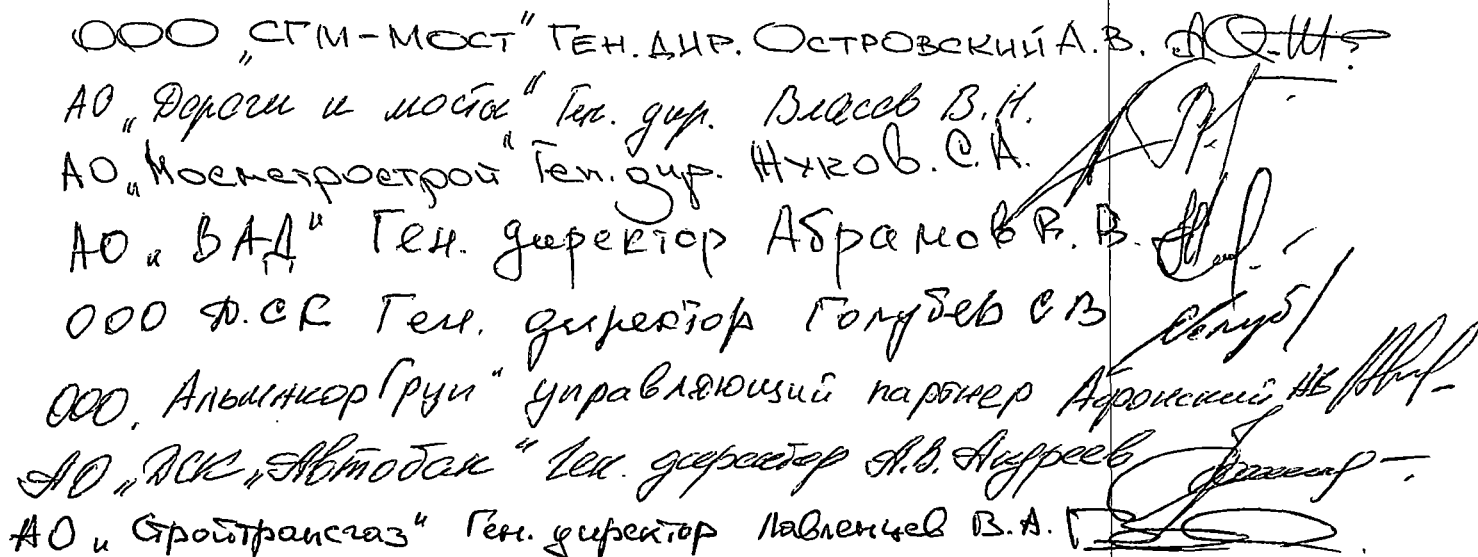 ООО „СГМ-МОСТ" ГЕН. ДИР. ОСТРОВСКИЙ А.В.
АО „Дороги и мосты" Ген. дир. Власов В.Н.
АО „Мосметрострой" Ген. дир. Жуков. С.А.
АО „ВАД" Ген. директор Абрамов В. В.
ООО Д.СК Ген. директор Голубев С В
ООО „АльминкорГруп" управляющий партнер Афонский АВ
АО „ДСК „Автобан" Ген. директор А.В. Андреев
АО „Стройтрансгаз" Ген. директор Павленцев В.А.